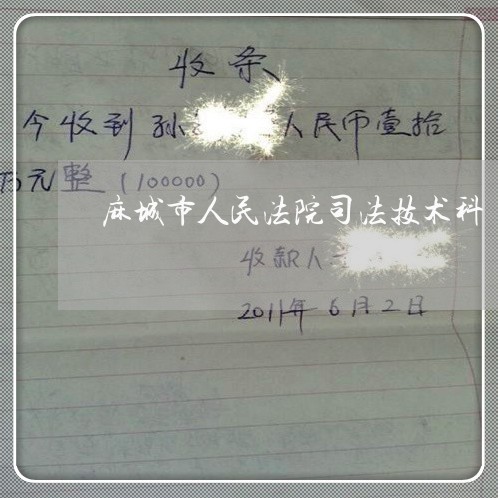 收条
今收到孙 人民币壹拾
万元整(100000)
麻城市人民法院司法技术科
收款人
2011年6月2日